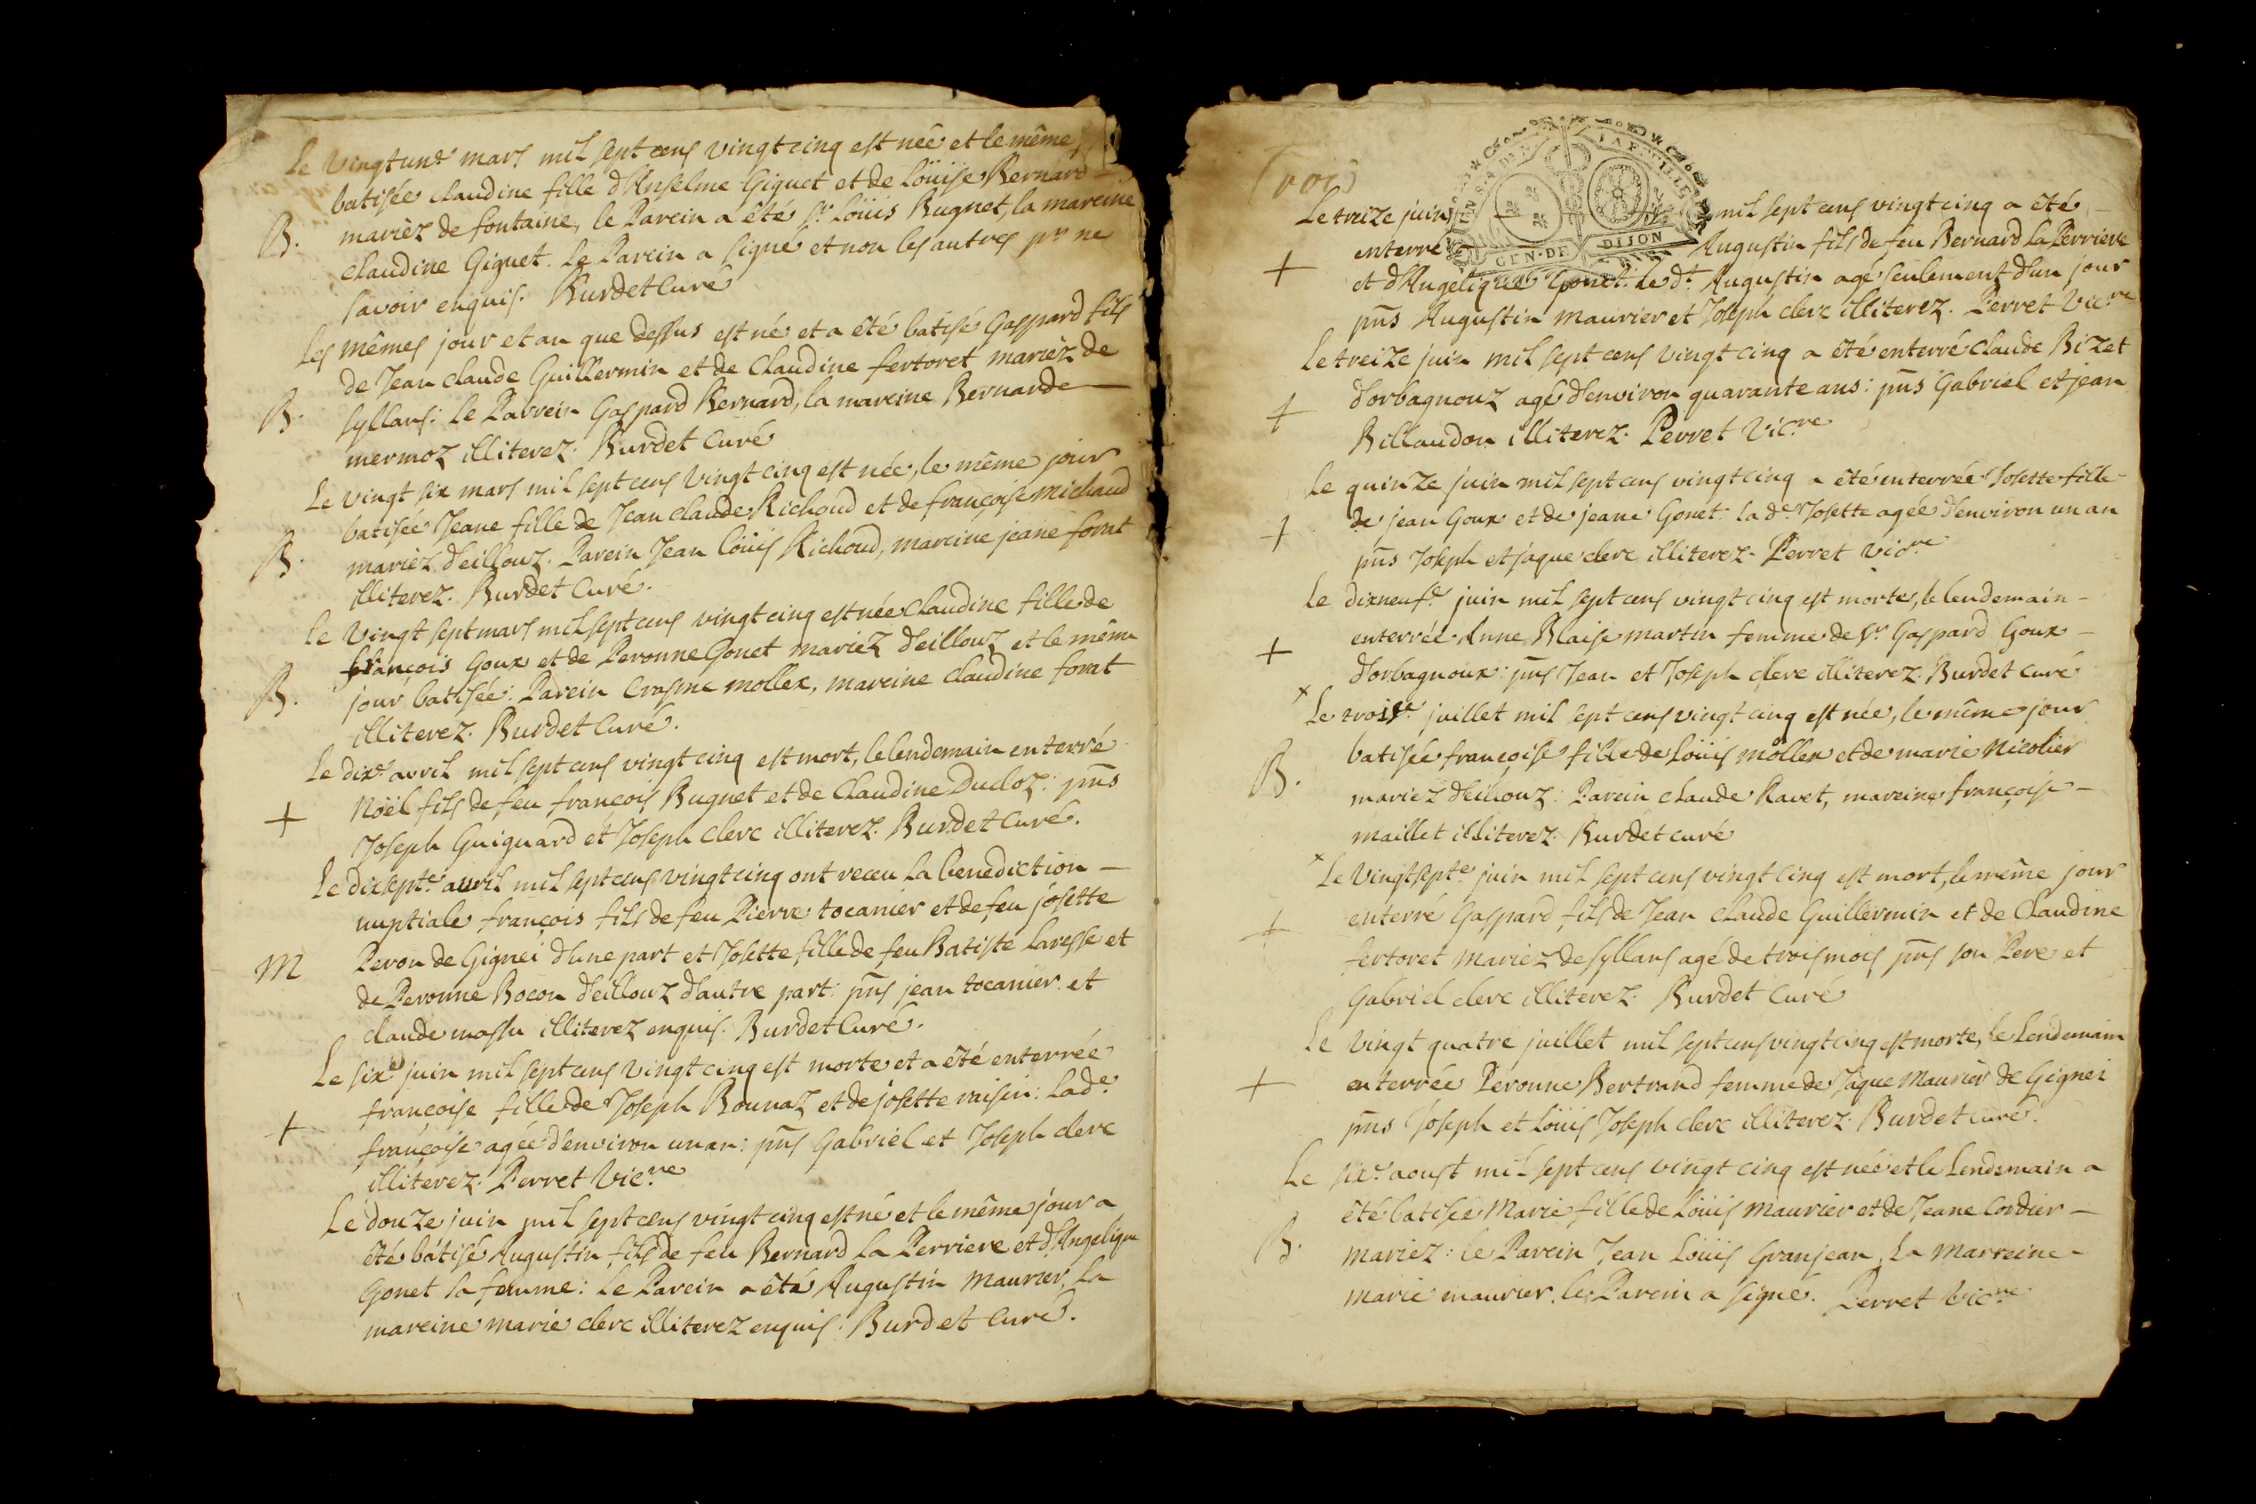 Le vingt un.e mars mil sept cens vingt cinq est née et le même
batisée claudine fille d'Anselme Giguet et de Loüise Bernard
B. mariéz de fontaine, le Parein a été Sr. Loüis Bugnet, la mareine
claudine Giguet. Le Parein a signé et non les autres pr. ne
savoir enquis. Burdet Curé
Les mêmes jour et an que dessus est né et a été batisé Gaspard fils
de Jean claude Guillermin et de Claudine fertoret mariéz de
B. Syllans: le Parrein Gaspard Bernard, la mareine Bernarde
mermoz illiterez. Burdet Curé
Le vingt six mars mil sept cens vingt cinq est née, le même jour
batisée Jeane fille de Jean claude Richoud et de françoise michaud
B. mariéz d'eillouz. Parein Jean Loüis Richoud, mareine jeane forat
illiterez. Burdet Curé.
le Vingt sept mars mil sept cens vingt cinq est née Claudine fille de
françois Goux et de Peronne Gonet mariéz d'eillouz et le même
B. jour batisée: Parein Erasme mollex, mareine claudine forat
illiterez. Burdet Curé.
Le dix.e avril mil sept cens vingt cinq est mort, le lendemain enterré
+ Noël fils de feu françois Bugnet et de Claudine Ducloz: pns
Joseph Guiguard et Joseph Clerc illiterez. Burdet Curé.
Le dicsept.e avril mil sept cens vingt cinq ont receu la benediction
nuptiale françois fils de feu Pierre tocanier et de feu josette
M Peron de Gignei d'une part et Josette fille de feu Batiste Laresse et
de Peronne Bocon d'eillouz d'autre part: pns jean tocanier et
claude massu illiterez enquis. Burdet Curé.
Le six.e juin mil sept cens vingt cinq est morte et a été enterrée
françoise fille de Joseph Bounaz et de josette raisin: lad.e
+ françoise agée d'environ un an: pns Gabriel et Joseph clerc
illiterez. Perret Vic.re
Le douze juin mil sept cens vingt cinq est né et le même jour a
été bátisé Augustin fils de feu Bernard La Perriere et d'Angelique
Gonet sa femme: le Parein a été Augustin Maurier, la
mareine marie clerc illiterez enquis. Burdet Curé.
GEN. DE DIJON
Le treize juin mil sept cens vingt cinq a été
enterré Augustin fils de feu Bernard La Perriere
+ et d'Angelique Gonet. le d.t Augustin agé seulement d'un jour
pns Augustin maurier et Joseph clerc illiterez. Perret Vic.re
Le treize juin mil sept cens vingt cinq a été enterré Claude Bizet
+ d'orbagnouz agé d'environ quarante ans: pns Gabriel et jean
Billaudon illiterez. Perret Vic.re
Le quinze juin mil sept cens vingt cinq a été enterrée Josette fille
+ de jean Goux et de jeane Gonet: la d.e Josette agée d'environ un an
pns Joseph et jaque clerc illiterez. Perret Vic.re
Le dixneuf.e juin mil sept cens vingt cinq est morte, le lendemain
+ enterrée Anne Blaise martin femme de Sr. Gaspard Goux
d'orbagnoux: pns Jean et Joseph clerc illiterez. Burdet Curé
x Le trois.e juillet mil sept cens vingt cinq est née, le même jour
batisée françoise fille de Loüis mollex et de marie Nicolier
B. mariez d'eillouz: Parein claude Ravet, mareine françoise
maillet illiterez. Burdet curé
x Le Vingtsept.e juin mil sept cens vingt cinq est mort, le même jour
+ enterré Gaspard fils de Jean claude Guillermin et de Claudine
fertoret mariez de Syllans agé de trois mois pns son Pere et
Gabriel clerc illiterez. Burdet Curé
Le vingt quatre juillet mil sept cens vingt cinq est morte, le Lendemain
+ enterrée Peronne Bertrand femme de Jâque Maurier de Gignei
pns Joseph et Loüis Joseph clerc illiterez. Burdet Curé.
Le six.e aoust mil sept cens vingt cinq est née et le Lendemain a
été batisée Marie fille de Loüis Maurier et de Jeane Cordier
B. mariez: le Parein Jean Loüis Granjean, La Marreine
marie maurier. le Parein a signé. Perret Vic.re